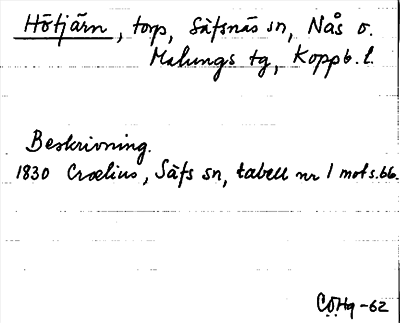 Hötjärn, torp, Säfsnäs sn, Nås o.
Malungs tg, Koppb. l.
Beskrivning.
1830 Crælius, Säfs sn, tabell nr 1 mot s. 66.
CÖHg -62